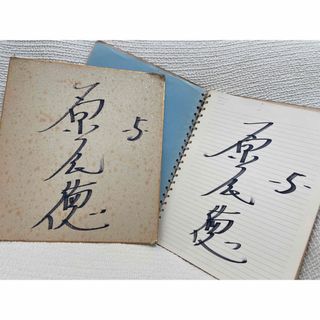 原辰徳
-5-
原辰徳
-5-